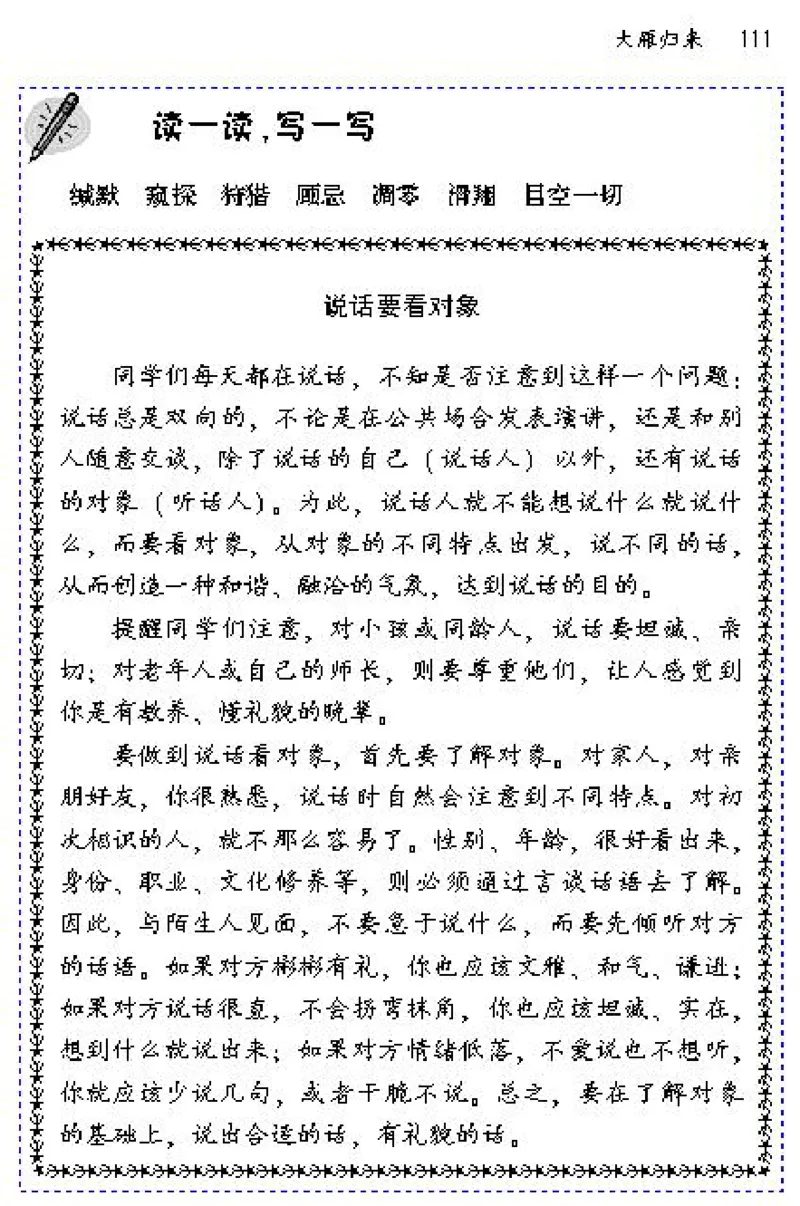 大雁归来 111
读一读，写一写
缄默 窥探 狩猎 顾忌 凋零 滑翔 目空一切
说话要看对象
同学们每天都在说话，不知是否注意到这样一个问题：
说话总是双向的，不论是在公共场合发表演讲，还是和别
人随意交谈，除了说话的自己（说话人）以外，还有说话
的对象（听话人）。为此，说话人就不能想说什么就说什
么，而要看对象，从对象的不同特点出发，说不同的话，
从而创造一种和谐、融洽的气氛，达到说话的目的。
提醒同学们注意，对小孩或同龄人，说话要坦诚、亲
切；对老年人或自己的师长，则要尊重他们，让人感觉到
你是有教养、懂礼貌的晚辈。
要做到说话看对象，首先要了解对象。对家人，对亲
朋好友，你很熟悉，说话时自然会注意到不同特点。对初
次相识的人，就不那么容易了。性别、年龄，很好看出来，
身份、职业、文化修养等，则必须通过言谈话语去了解。
因此，与陌生人见面，不要急于说什么，而要先倾听对方
的话语。如果对方彬彬有礼，你也应该文雅、和气、谦逊；
如果对方说话很直，不会拐弯抹角，你也应该坦诚、实在，
想到什么就说出来；如果对方情绪低落，不爱说也不想听，
你就应该少说几句，或者干脆不说。总之，要在了解对象
的基础上，说出合适的话，有礼貌的话。